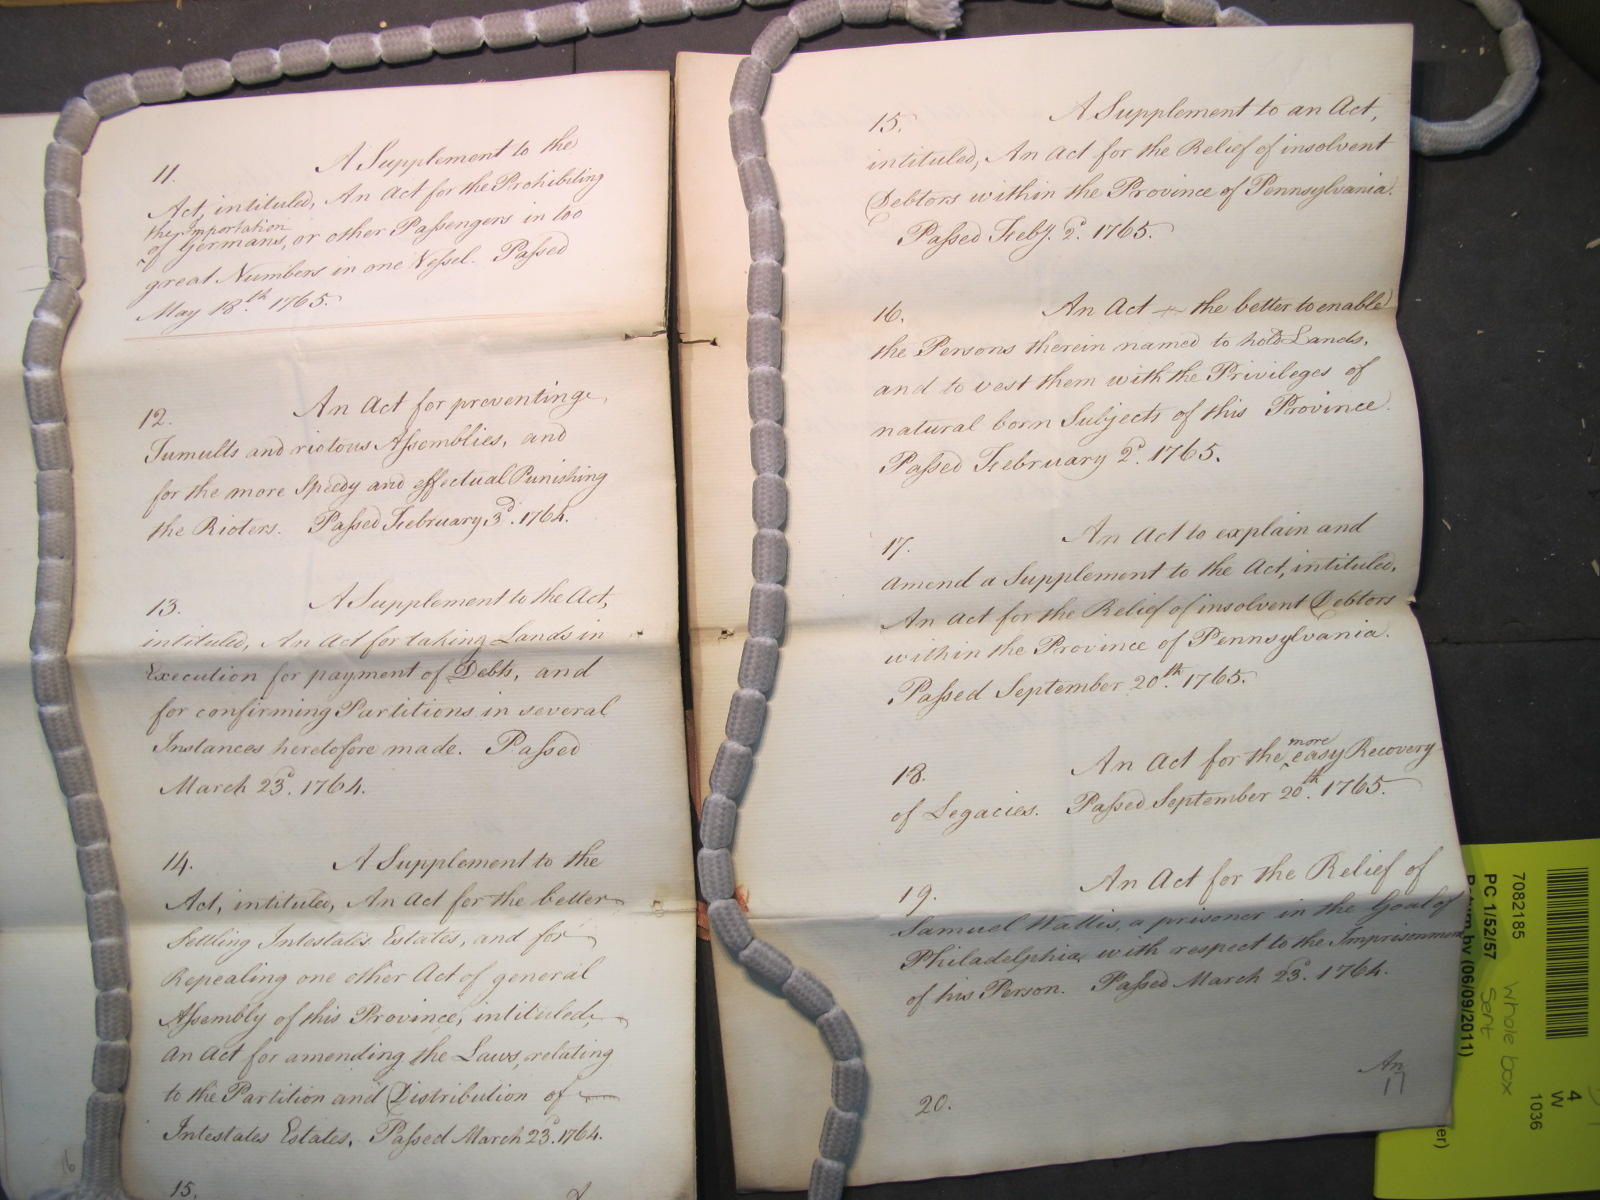 11. A Supplement to the
Act, intituled, An Act for the Prohibiting
the Importation
of Germans, or other Passengers in too
great Numbers in one Vessel. Passed
May 18.th 1765.
12. An Act for preventing
Tumults and riotous Assemblies, and
for the more Speedy and effectual Punishing
the Rioters. Passed February 3d. 1764.
13. A Supplement to the Act,
intituled, An Act for taking Lands in
Execution for payment of Debts, and
for confirming Partitions in several
Instances heretofore made. Passed
March 23d. 1764.
14. A Supplement to the
Act, intituled, An Act for the better
Settling Intestates Estates, and for
Repealing one other Act of general
Assembly of this Province, intituled,
an Act for amending the Laws, relating
to the Partition and Distribution of
Intestates Estates. Passed March 23d. 1764.
15.
16
15. A Supplement to an Act,
intituled, An Act for the Relief of insolvent
Debtors within the Province of Pennsylvania.
Passed Feby. 2d. 1765.
16. An Act the better to enable
the Persons therein named to hold Lands,
and to vest them with the Privileges of
natural born Subjects of this Province.
Passed February 2d. 1765.
17. An Act to explain and
amend a Supplement to the Act, intituled,
An Act for the Relief of insolvent Debtors
within the Province of Pennsylvania.
Passed September 20.th 1765.
18. An Act for the more easy Recovery
of Legacies. Passed September 20th. 1765.
19. An Act for the Relief of
Samuel Wallis, a prisoner in the Goal of
Philadelphia, with respect to the Imprisonment
of his Person. Passed March 23d. 1764.
An
17
20.
7082185
PC 1/52/57
by (06/09/2011)
whole box
sent
4
W
1036
er)